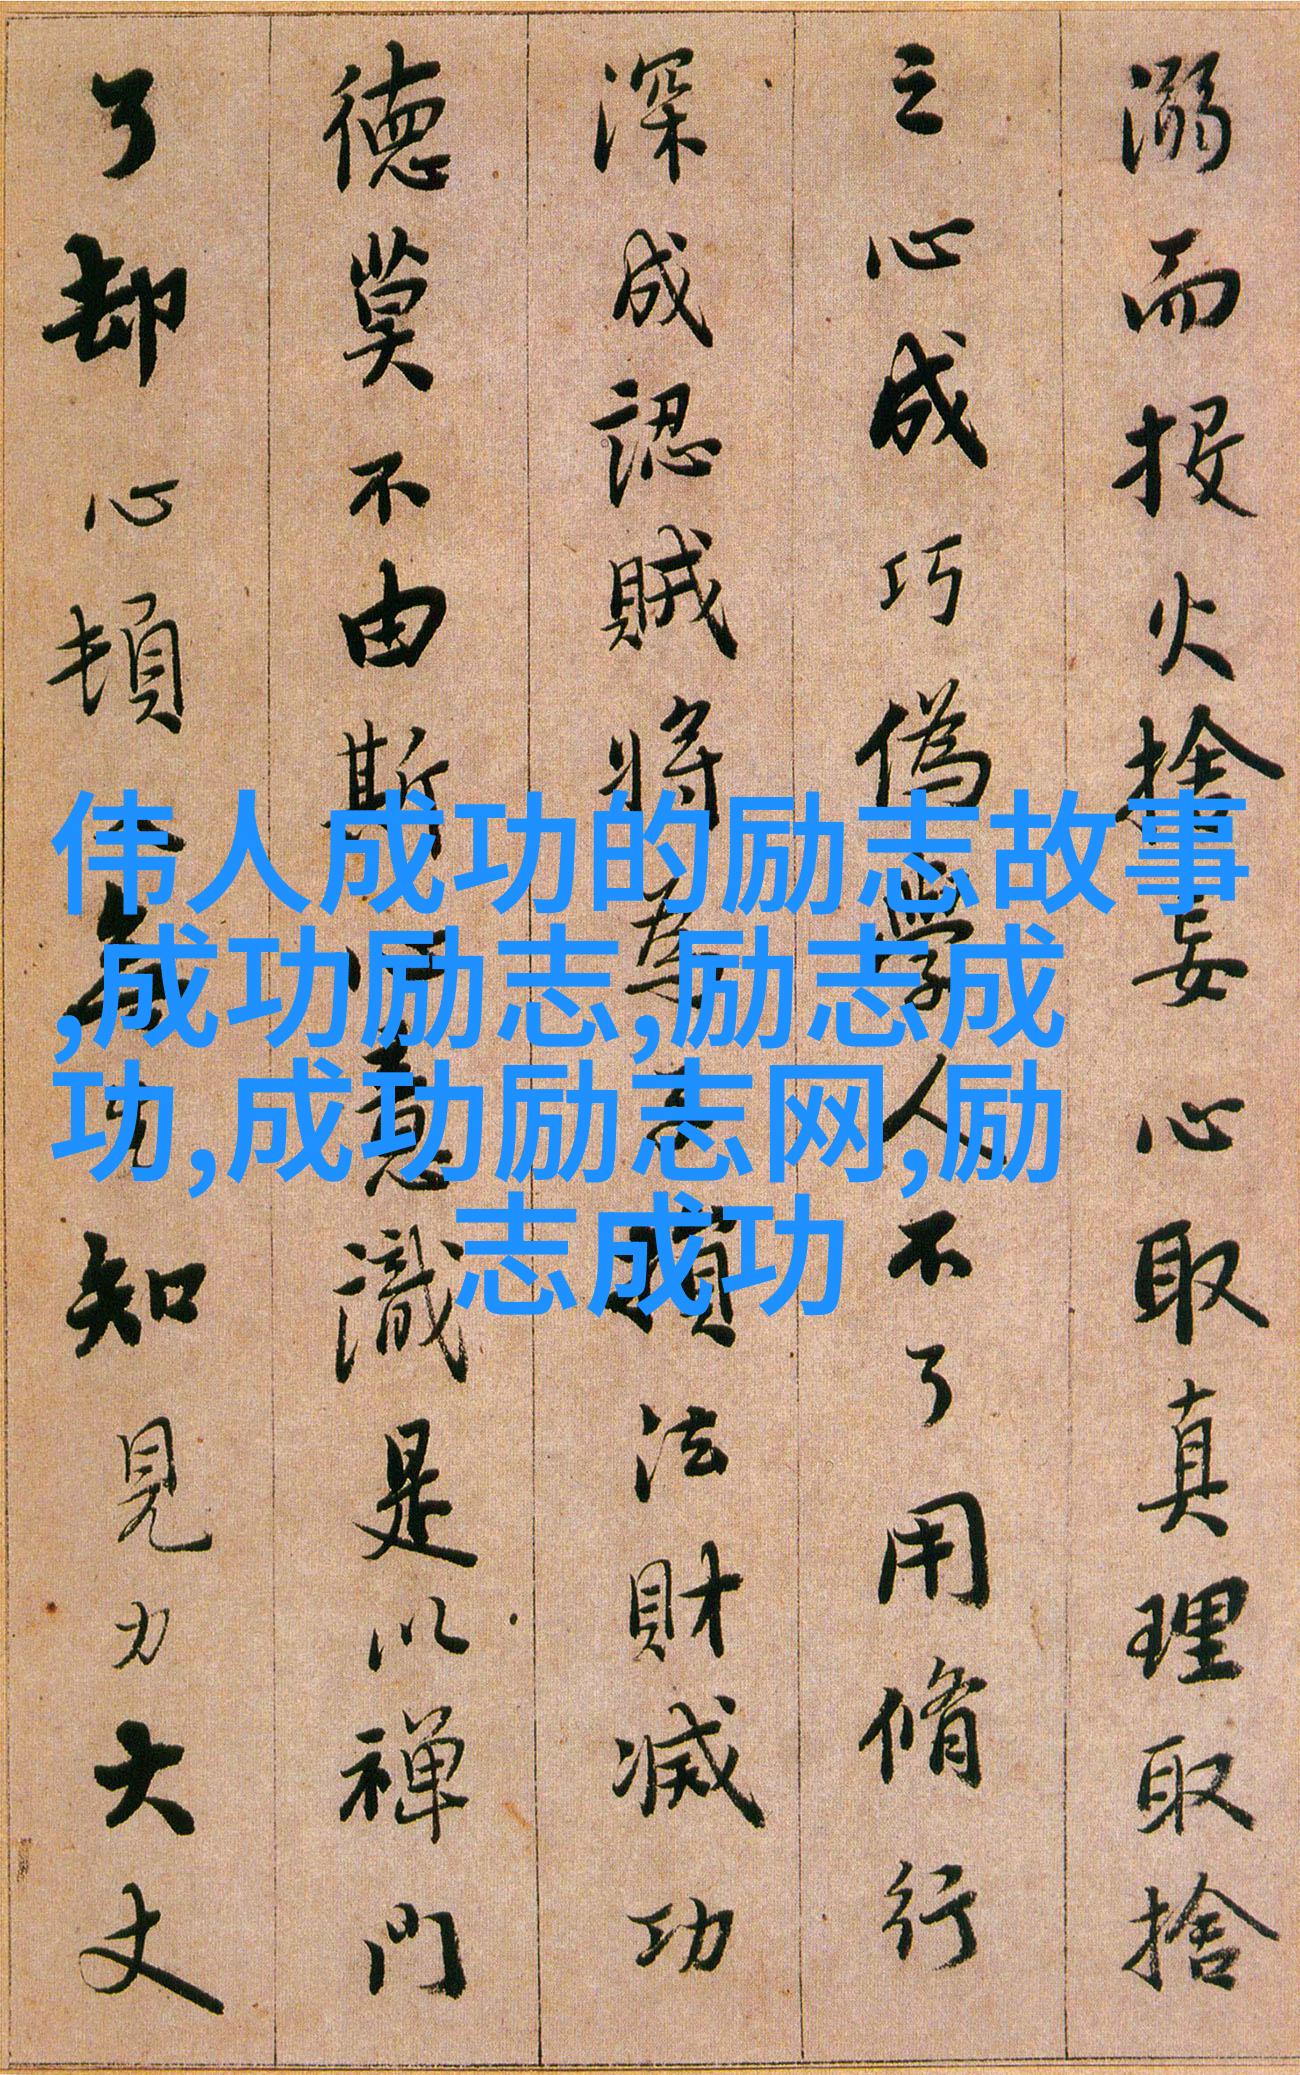 溺而投火捨妄心取真理取捨
之心成巧偽學人不了用脩行
深成認賊將為子損法財滅功
德莫不由斯心意識是以禪門
了却心頓入無生知見力大丈
伟人成功的励志故事
,成功励志,励志成
功,成功励志网,励
志成功